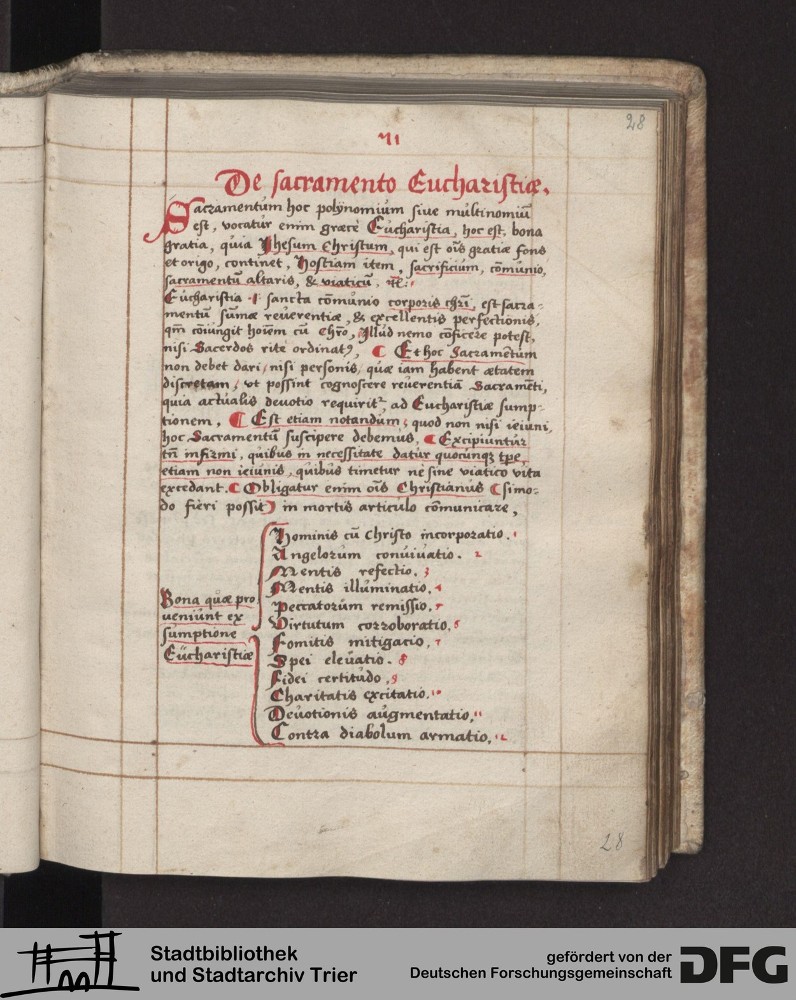 28
De sacramento Eucharistiæ.
Sacramentum hoc polynomium siue multinomiū
est, vocatur enim græce Eucharistia, hoc est, bona
gratia, quia Jhesum Christum, qui est oīs gratiæ fons
et origo, continet, Hostiam item, sacrificium, cōmunio,
sacramentū altaris, & viaticū,
Eucharistia .i. sancta cōmunio corporis chrī, est sacra-
mentū sūmæ reuerentiæ, & excellentis perfectionis,
qm̄ cōiungit hoīem cū Chrō, Illud nemo cōficere potest,
nisi Sacerdos rite ordinatꝰ, ¶ Et hoc Sacramētum
non debet dari, nisi personis, quæ iam habent ætatem
discretam, vt possint cognoscere reuerentiā Sacramēti,
quia actualis deuotio requirit᷑, ad Eucharistiæ sump-
tionem, ¶ Est etiam notandum, quod non nisi ieiuni,
hoc Sacramentū suscipere debemus, ¶ Excipiuntur
tn̄ infirmi, quibus in necessitate datur quocunqꝫ tp̄e,
etiam non ieiunis, quibus timetur ne sine viatico vita
excedant. ¶ Obligatur enim oīs Christianus (simo-
do fieri possit) in mortis articulo cōmunicare,
Bona quæ pro
ueniunt ex
sumptione
Eucharistiæ
Hominis cū Christo incorporatio. 1
Angelorum conuiuatio. 2
Mentis refectio. 3
Mentis illuminatio. 4
Peccatorum remissio. 5
Virtutum corroboratio. 6
Fomitis mitigacio. 7
Spei eleuatio. 8
Fidei certitudo. 9
Charitatis excitatio. 10
Deuotionis augmentatio. 11
Contra diabolum armatio. 12
28
Stadtbibliothek
und Stadtarchiv Trier
gefördert von der
Deutschen Forschungsgemeinschaft
DFG